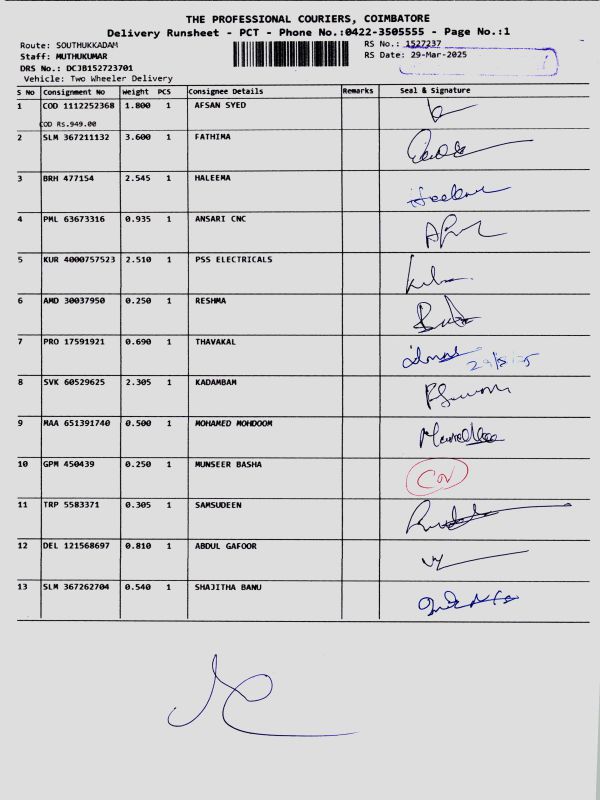 THE PROFESSIONAL COURIERS, COIMBATORE
Delivery Runsheet - PCT - Phone No.:0422-3505555 - Page No.:1
Route: SOUTHUKKADAM
RS No.: 1527237
Staff: MUTHUKUMAR
RS Date: 29-Mar-2025
DRS No.: DCJB152723701
Vehicle: Two Wheeler Delivery
S No Consignment No Weight PCS Consignee Details Remarks Seal & Signature
1 COD 1112252368 1.800 1 AFSAN SYED
COD Rs.949.00
2 SLM 367211132 3.600 1 FATHIMA
3 BRH 477154 2.545 1 HALEEMA
4 PML 63673316 0.935 1 ANSARI CNC
5 KUR 4000757523 2.510 1 PSS ELECTRICALS
6 AMD 30037950 0.250 1 RESHMA
7 PRO 17591921 0.690 1 THAVAKAL
8 SVK 60529625 2.305 1 KADAMBAM
9 MAA 651391740 0.500 1 MOHAMED MOHDOOM
10 GPM 450439 0.250 1 MUNSEER BASHA
11 TRP 5583371 0.305 1 SAMSUDEEN
12 DEL 121568697 0.810 1 ABDUL GAFOOR
13 SLM 367262704 0.540 1 SHAJITHA BANU